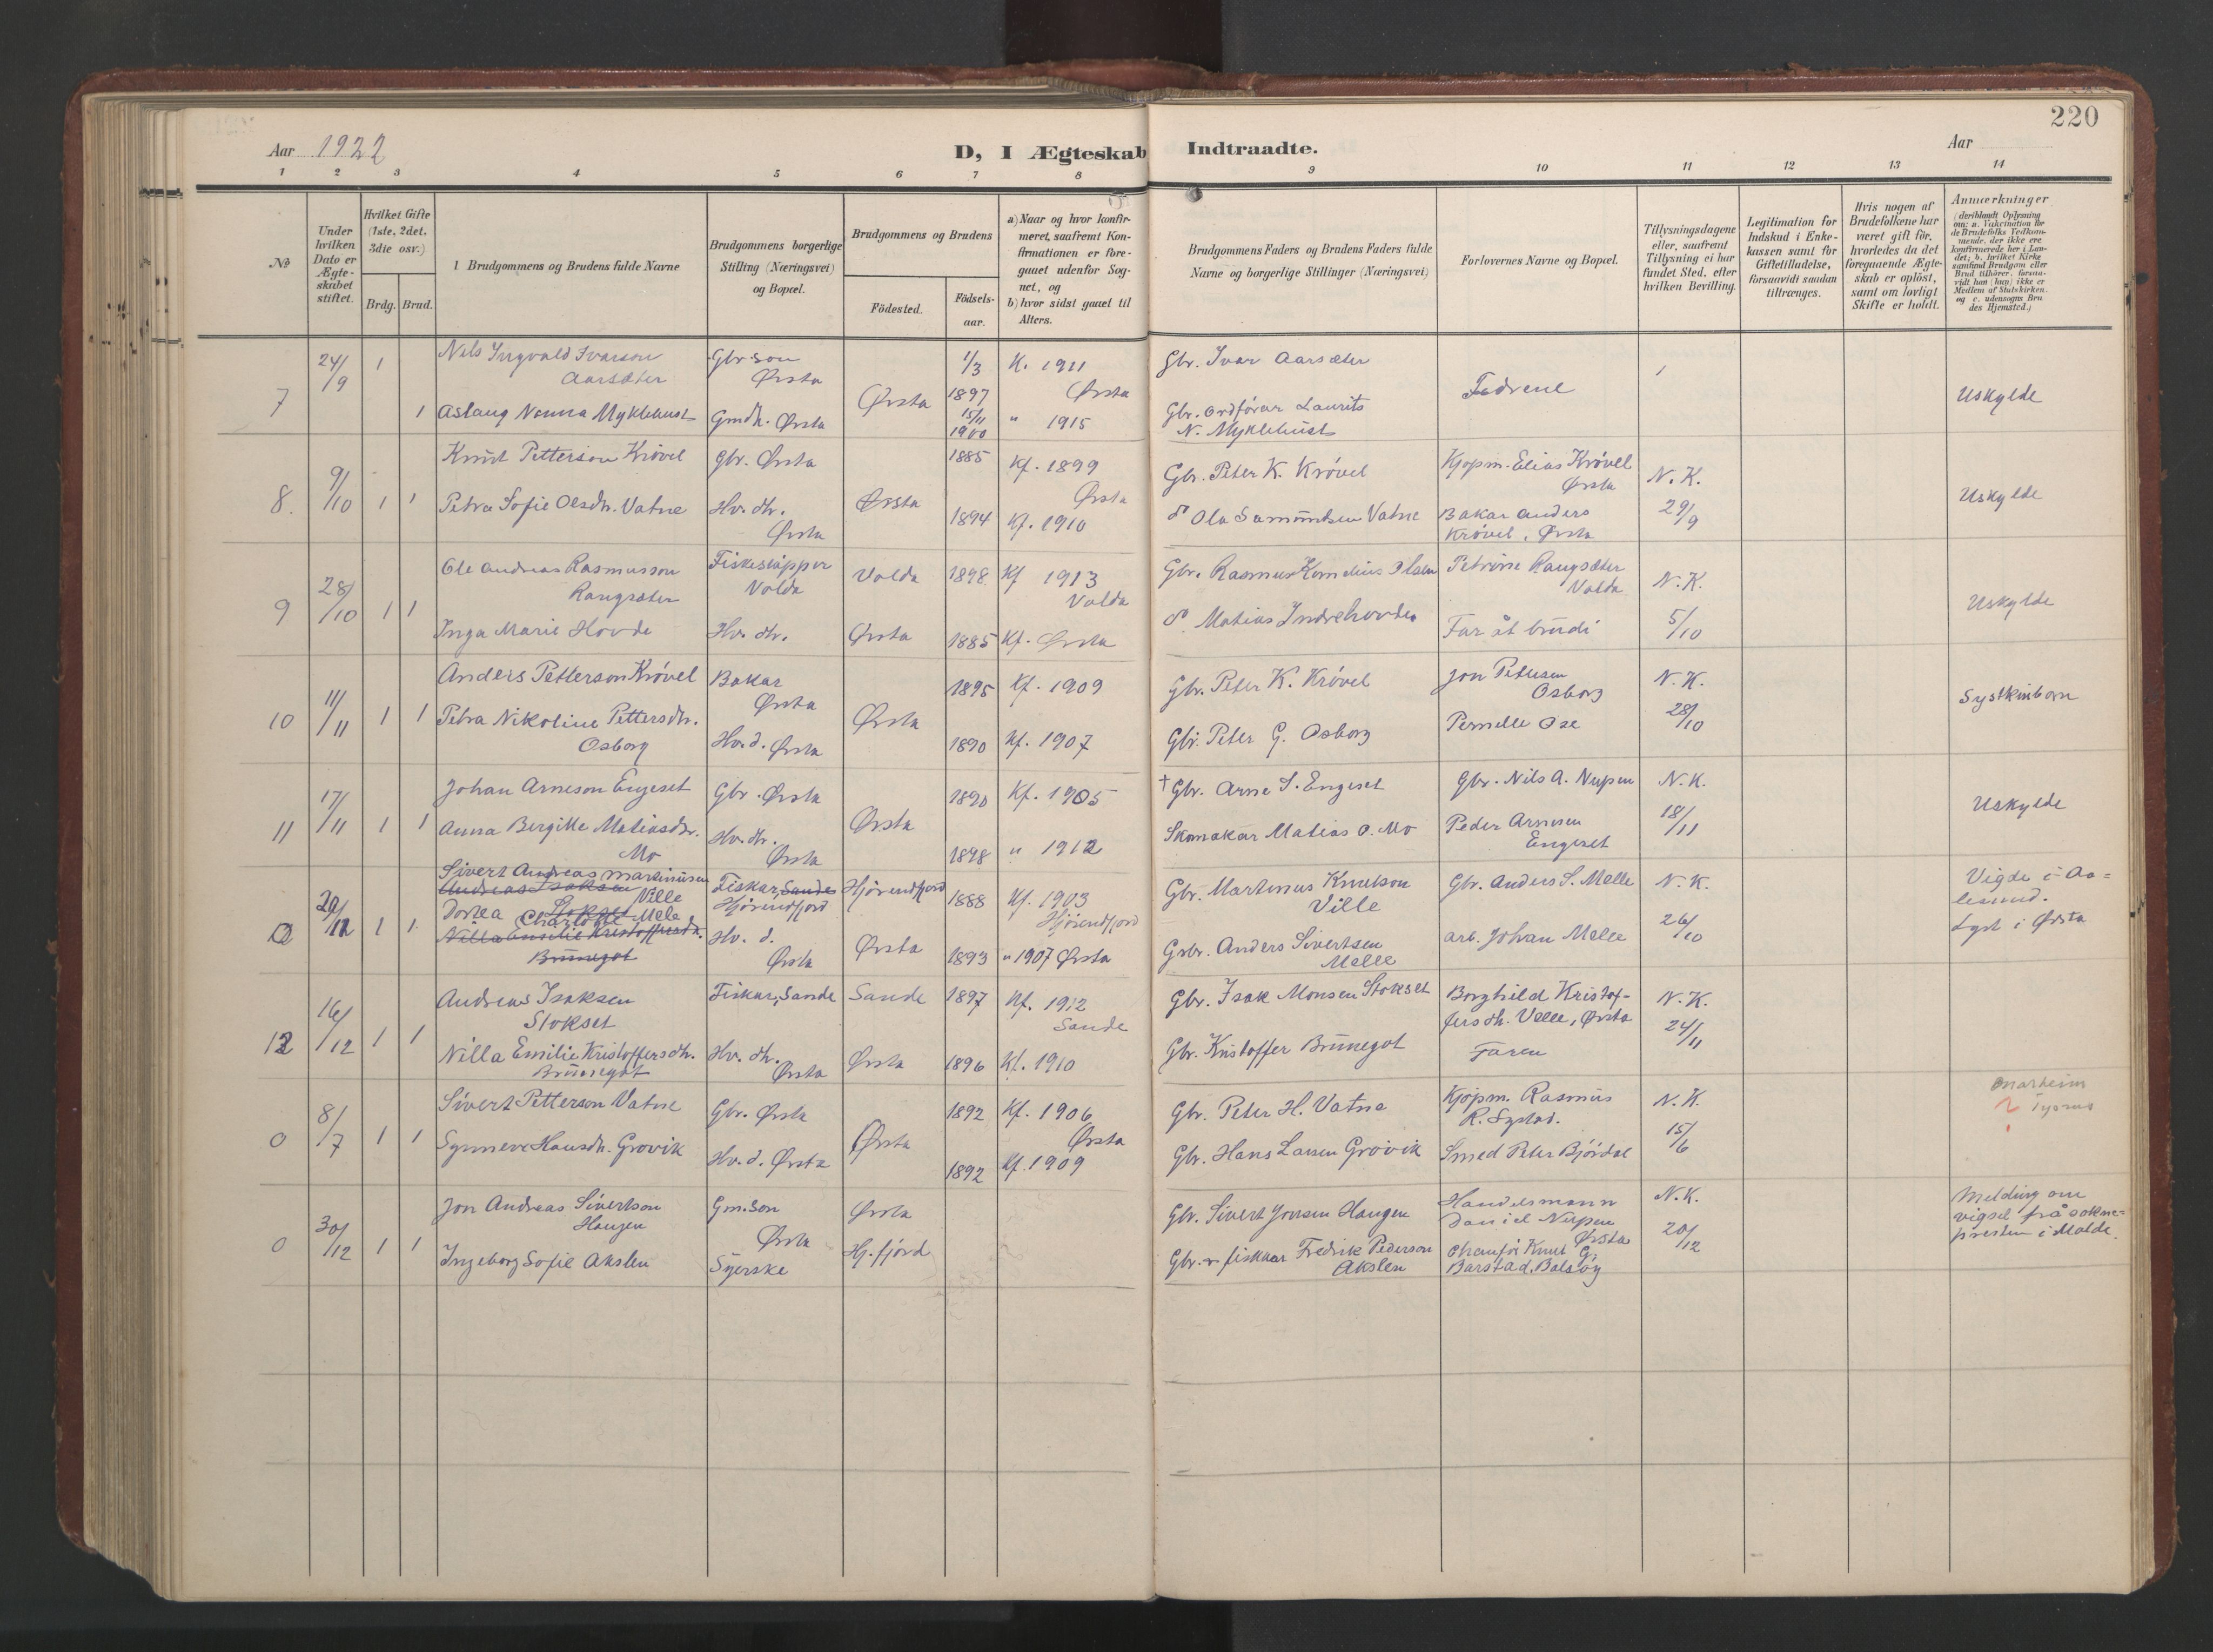 220
Aar 1922
D, I Ægteskab Indtraadte.
Aar
1 2 3 4 5 6 7 8 9 10 11 12 13 14
No
Under hvilken Dato er Ægteskabet stiftet.
Hvilket Gifte (1ste, 2det, 3die osv.)
Brdg. Brud.
Brudgommens og Brudens fulde Navne
Brudgommens borgerlige Stilling (Næringsvei) og Bopæl.
Brudgommens og Brudens
Födested.
Födselsaar.
a) Naar og hvor konfirmeret, saafremt Konfirmationen er foregaaet udenfor Sognet, og
b) hvor sidst gaaet til Alters.
Brudgommens Faders og Brudens Faders fulde Navne og borgerlige Stillinger (Næringsvei)
Forlovernes Navne og Bopæl.
Tillysningsdagene eller, saafremt Tillysning ei har fundet Sted, efter hvilken Bevilling.
Legitimation for Indskud i Enkekassen samt for Giftetilladelse, forsaavidt saadan tiltrænges.
Hvis nogen af Brudefolkene har været gift för, hvorledes da det foregaaende Ægteskab er oplöst, samt om lovligt Skifte er holdt.
Anmærkninger
(deriblandt Oplysning om: a. Vakcination for de Brudefolks Vedkommende, der ikke ere konfirmerede her i Landet; b. hvilket Kirkesamfund Brudgom eller Brud tilhörer, forsaavidt han (hun) ikke er Medlem af Statskirken, og c. udensogns Brudes Hjemsted.)
7 24/9 1 Nils Ingvald Ivarson Aarsæter Gbr. son Ørsta Ørsta 1/3 1897 K. 1911 Ørsta Gbr. Ivar Aarsæter Fedrene Uskylde
1 Aslaug Nanna Myklebust Gmdh. Ørsta 15/11 1900 " 1915 Gbr. ordförar Laurits N. Myklebust
8. 9/10 1 1 Knut Petterson Krövel Gbr. Ørsta Ørsta 1885 Kf. 1899 Ørsta Gbr. Peter K. Krövel Kjöpm. Elias Krövel Ørsta N. K. 29/9 Uskylde
Petra Sofie Olsdtr. Vatne Hv. dtr. Ørsta 1894 Kf. 1910 Ola Samundsen Vatne Bakar Anders Krövel, Ørsta
9 28/10 1 1 Ole Andreas Rasmusson Rangsæter Fiskeskipper Volda Volda 1898 Kf 1913 Volda Gbr. Rasmus Kornelius Olsen Petrine Rangsæter Volda N. K. 5/10 Uskylde
Inga Marie Hovde Hv. dtr. Ørsta 1885 Kf. Ørsta Matias Indrehovde Far åt brudi
10 11/11 1 1 Anders Petterson Krövel Bakar Ørsta Ørsta 1895 Kf. 1909 Gbr. Peter K. Krövel Jon Petersen Osborg N. K. 28/10 Syskinborn
Petra Nikoline Pettersdtr. Osborg Hv. d. Ørsta 1890 Kf. 1907 Gbr. Peter G. Osborg Pernille Ose
11 17/11 1 1 Johan Arneson Engeset Gbr. Ørsta Ørsta 1890 Kf. 1905 † Gbr. Arne S. Engeset Gbr. Nils A. Nupen N. K. 18/11 Uskylde
Anna Bergitte Matiasdtr. Mo Hv. dtr. Ørsta 1898 " 1912 Skomakar Matias O. Mo Peder Arnesen Engeset
1 1 Sivert Andreas Martinusen Ville Andreas Isaksen Stokset Fiskar, Sande Hjörundfjord Hjörundfjord 1888 Kf. 1903 Hjörundfjord Gbr. Martinus Knutson Ville Gbr. Anders S. Melle N. K. 26/10 Vigde i Aalesund. Lyst i Ørsta
Dortea Charlotte Mele Nilla Emilie Kristoffersdtr. Brunegot Hv. d. Ørsta Ørsta 1893 " 1907 Ørsta Gbr. Anders Sivertsen Melle arb. Johan Melle
12 16/12 1 1 Andreas Isaksen Stokset Fiskar, Sande Sande 1897 Kf. 1912 Sande Gbr. Isak Monsen Stokset Borghild Kristoffersdtr. Velle, Ørsta N. K. 24/11
Nilla Emilie Kristoffersdtr. Brunegot Hv. dtr. Ørsta Ørsta 1896 Kf. 1910 Gbr. Kristoffer Brunegot Faren
0 8/7 1 1 Sivert Petterson Vatne Gbr. Ørsta Ørsta 1892 Kf. 1906 Ørsta Gbr. Peter H. Vatne Kjöpm. Rasmus R. N. K. 15/6
Synneve Hansdtr. Grovik Hv. d. Ørsta 1892 Kf. 1909 Gbr. Hans Larsen Grovik Smed Peter Björdal
0 30/12 1 1 Jon Andreas Sivertson Haugen Gm. son Ørsta Ørsta Gbr. Sivert Jonsen Haugen Handelsmann Daniel Nupen Ørsta N. K. 20/12 Melding om vigsel frå soknepresten i Molde.
Ingeborg Sofie Akslen Syerske Hj. fjord Gbr. & fiskar Fredrik Pederson Akslen Chauför Knut G. Barstad, Bolsöy